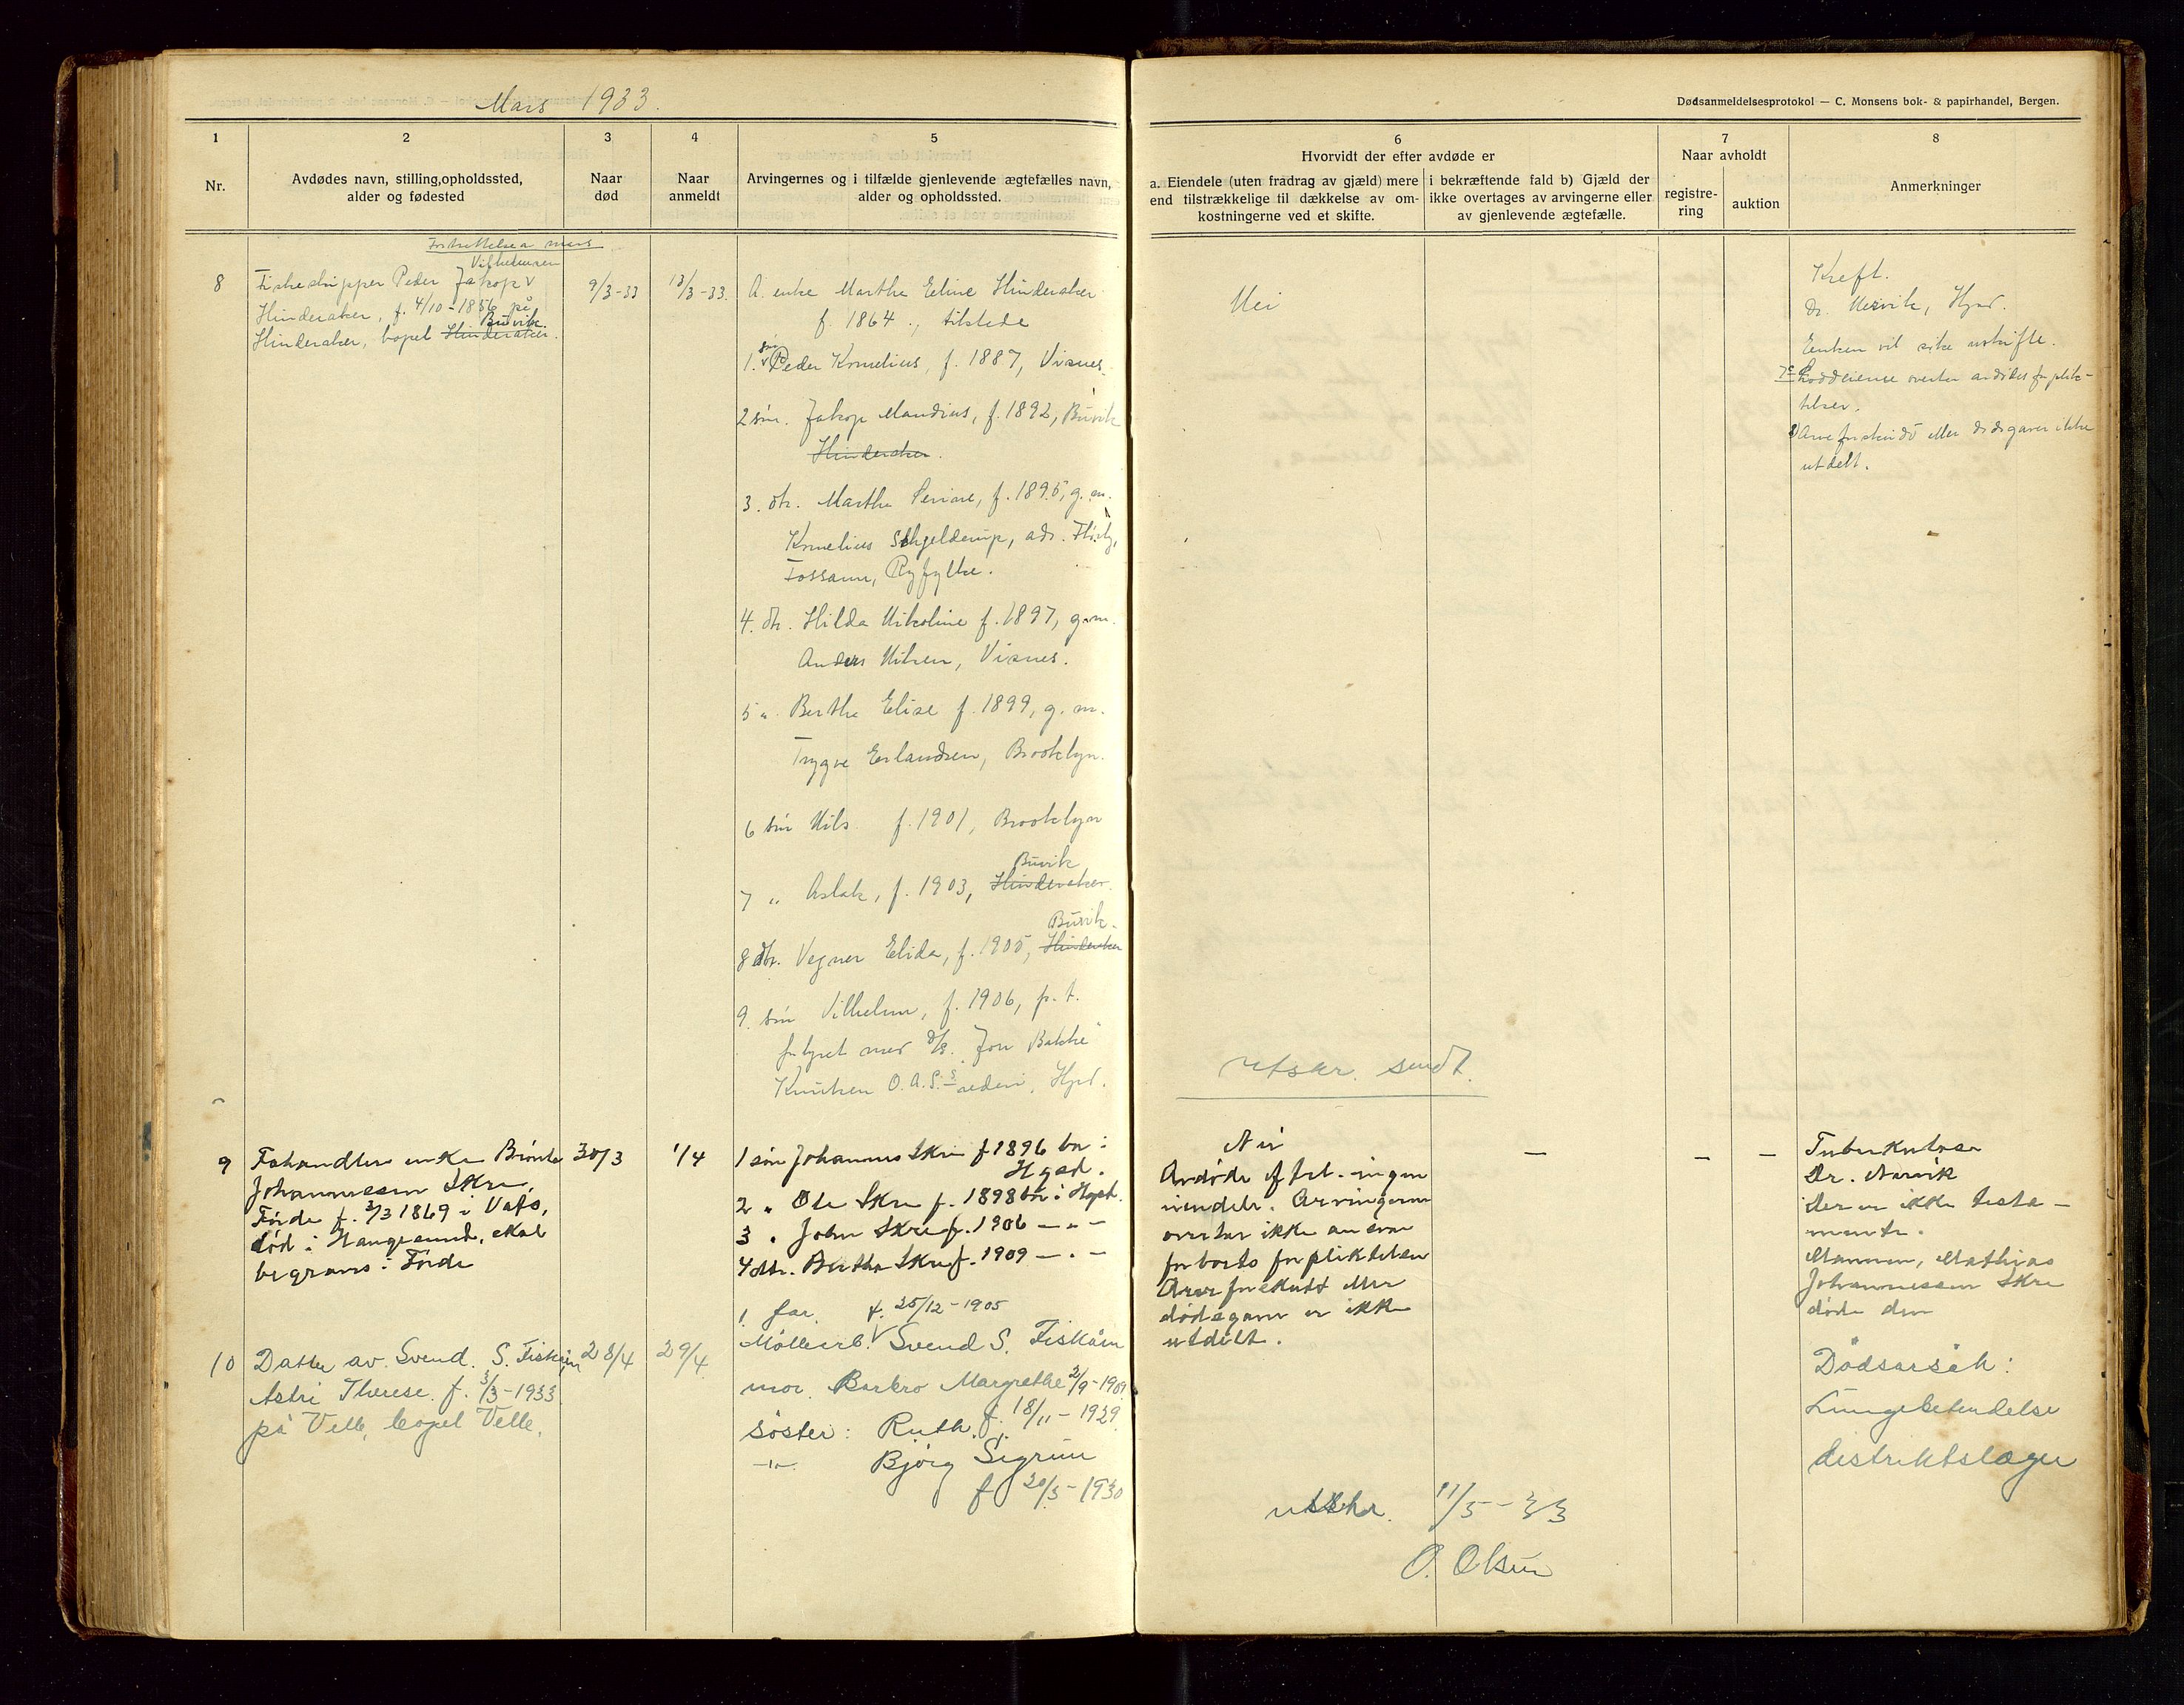 Mars 1933.
Dødsanmeldelsesprotokol — C. Monsens bok- & papirhandel, Bergen.
1
2
3
4
5
6
7
8
Nr.
Avdødes navn, stilling, opholdssted,
alder og fødested
Naar
død
Naar
anmeldt
Arvingernes og i tilfælde gjenlevende ægtefælles navn,
alder og opholdssted.
Hvorvidt der efter avdøde er
a. Eiendele (uten fradrag av gjæld) mere
end tilstrækkelige til dækkelse av om-
kostningerne ved et skifte.
i bekræftende fald b) Gjæld der
ikke overtages av arvingerne eller
av gjenlevende ægtefælle.
Naar avholdt
registre-
ring
auktion
Anmerkninger
Fortsettelse mars
8
Vilhelmsen
Fiskeskipper Peder Jakop
Hinderaker, f. 4/10-1856 på
Buvik.
Hinderaker, bopel Hinderaker.
9/3-33
13/3-33.
A. enke Marthe Eline Hinderaker
f. 1864., tilstede
1. søn Peder Kornelius, f. 1887, Visnes.
2 søn. Jakop Mandius, f. 1892, Buvik
Hinderaker.
3. dtr. Marthe Serine, f. 1895, g. m.
Kornelius Schjelderup, adr.
Fossann, Ryfylke.
4. dtr. Hilda Nikoline f. 1897, g. m.
Anders Nilsen, Visnes.
5 " Berthe Elise f. 1899, g. m.
Trygve Erlandsen, Brooklyn.
6 søn Nils f. 1901, Brooklyn
Buvik
7 " Aslak, f. 1903, Hinderaker.
Buvik.
8 dtr. Vegner Elida, f. 1905, Hinderaker
9. søn Vilhelm, f. 1906, p. t.
fyrbøter med D/S. Jon Bakke
Knutsen O.A.S.s rederi, Hgsd.
Nei
Kreft.
Dr. Nervik, Hgsd.
Enken vil sitte uskifte.
Loddeierne overtar avdødes forplik-
telser.
Arveforskudd eller dødsgaver ikke
utdelt.
utskr. sendt.
9
enke Bronla
Johannessen Skre,
Førde f. 3/3 1869 i Vats,
død i Haugesund, skal
begraves i Førde
30/3
1/4
1 søn Johannes Skre f 1896 bor i
Hgsd.
2 " Ole Skre f. 1898 bor i Hgsd.
3 " John Skre f. 1906 — " —
4 dtr. Bertha Skre f. 1909 — " —
Nei
Avdøde efterl. ingen
eiendele. Arvingerne
overtar ikke ansvar
for borts forpliktelser
Arveforskudd eller
dødsgaver er ikke
utdelt.
—
—
—
Tuberkulose
Dr. Nervik
Der er ikke testa-
mente.
Mannen, Mathias
Johannessen Skre
døde den
10
Datter av Svend S. Fiskåen
Astri Therese. f. 3/3-1933
på Velle, bopel Velle.
28/4
29/4
1. far. f. 25/12-1905
Møllearb. Svend S. Fiskåen
mor. Barbro Margrethe 2/9-1901
søster: Ruth. f. 18/11-1929
—"— Bjørg Sigrun
f 20/5-1930
Dødsårsak:
Lungebetendelse
distriktslæge
utskr. 11/5-33
O. Olsen